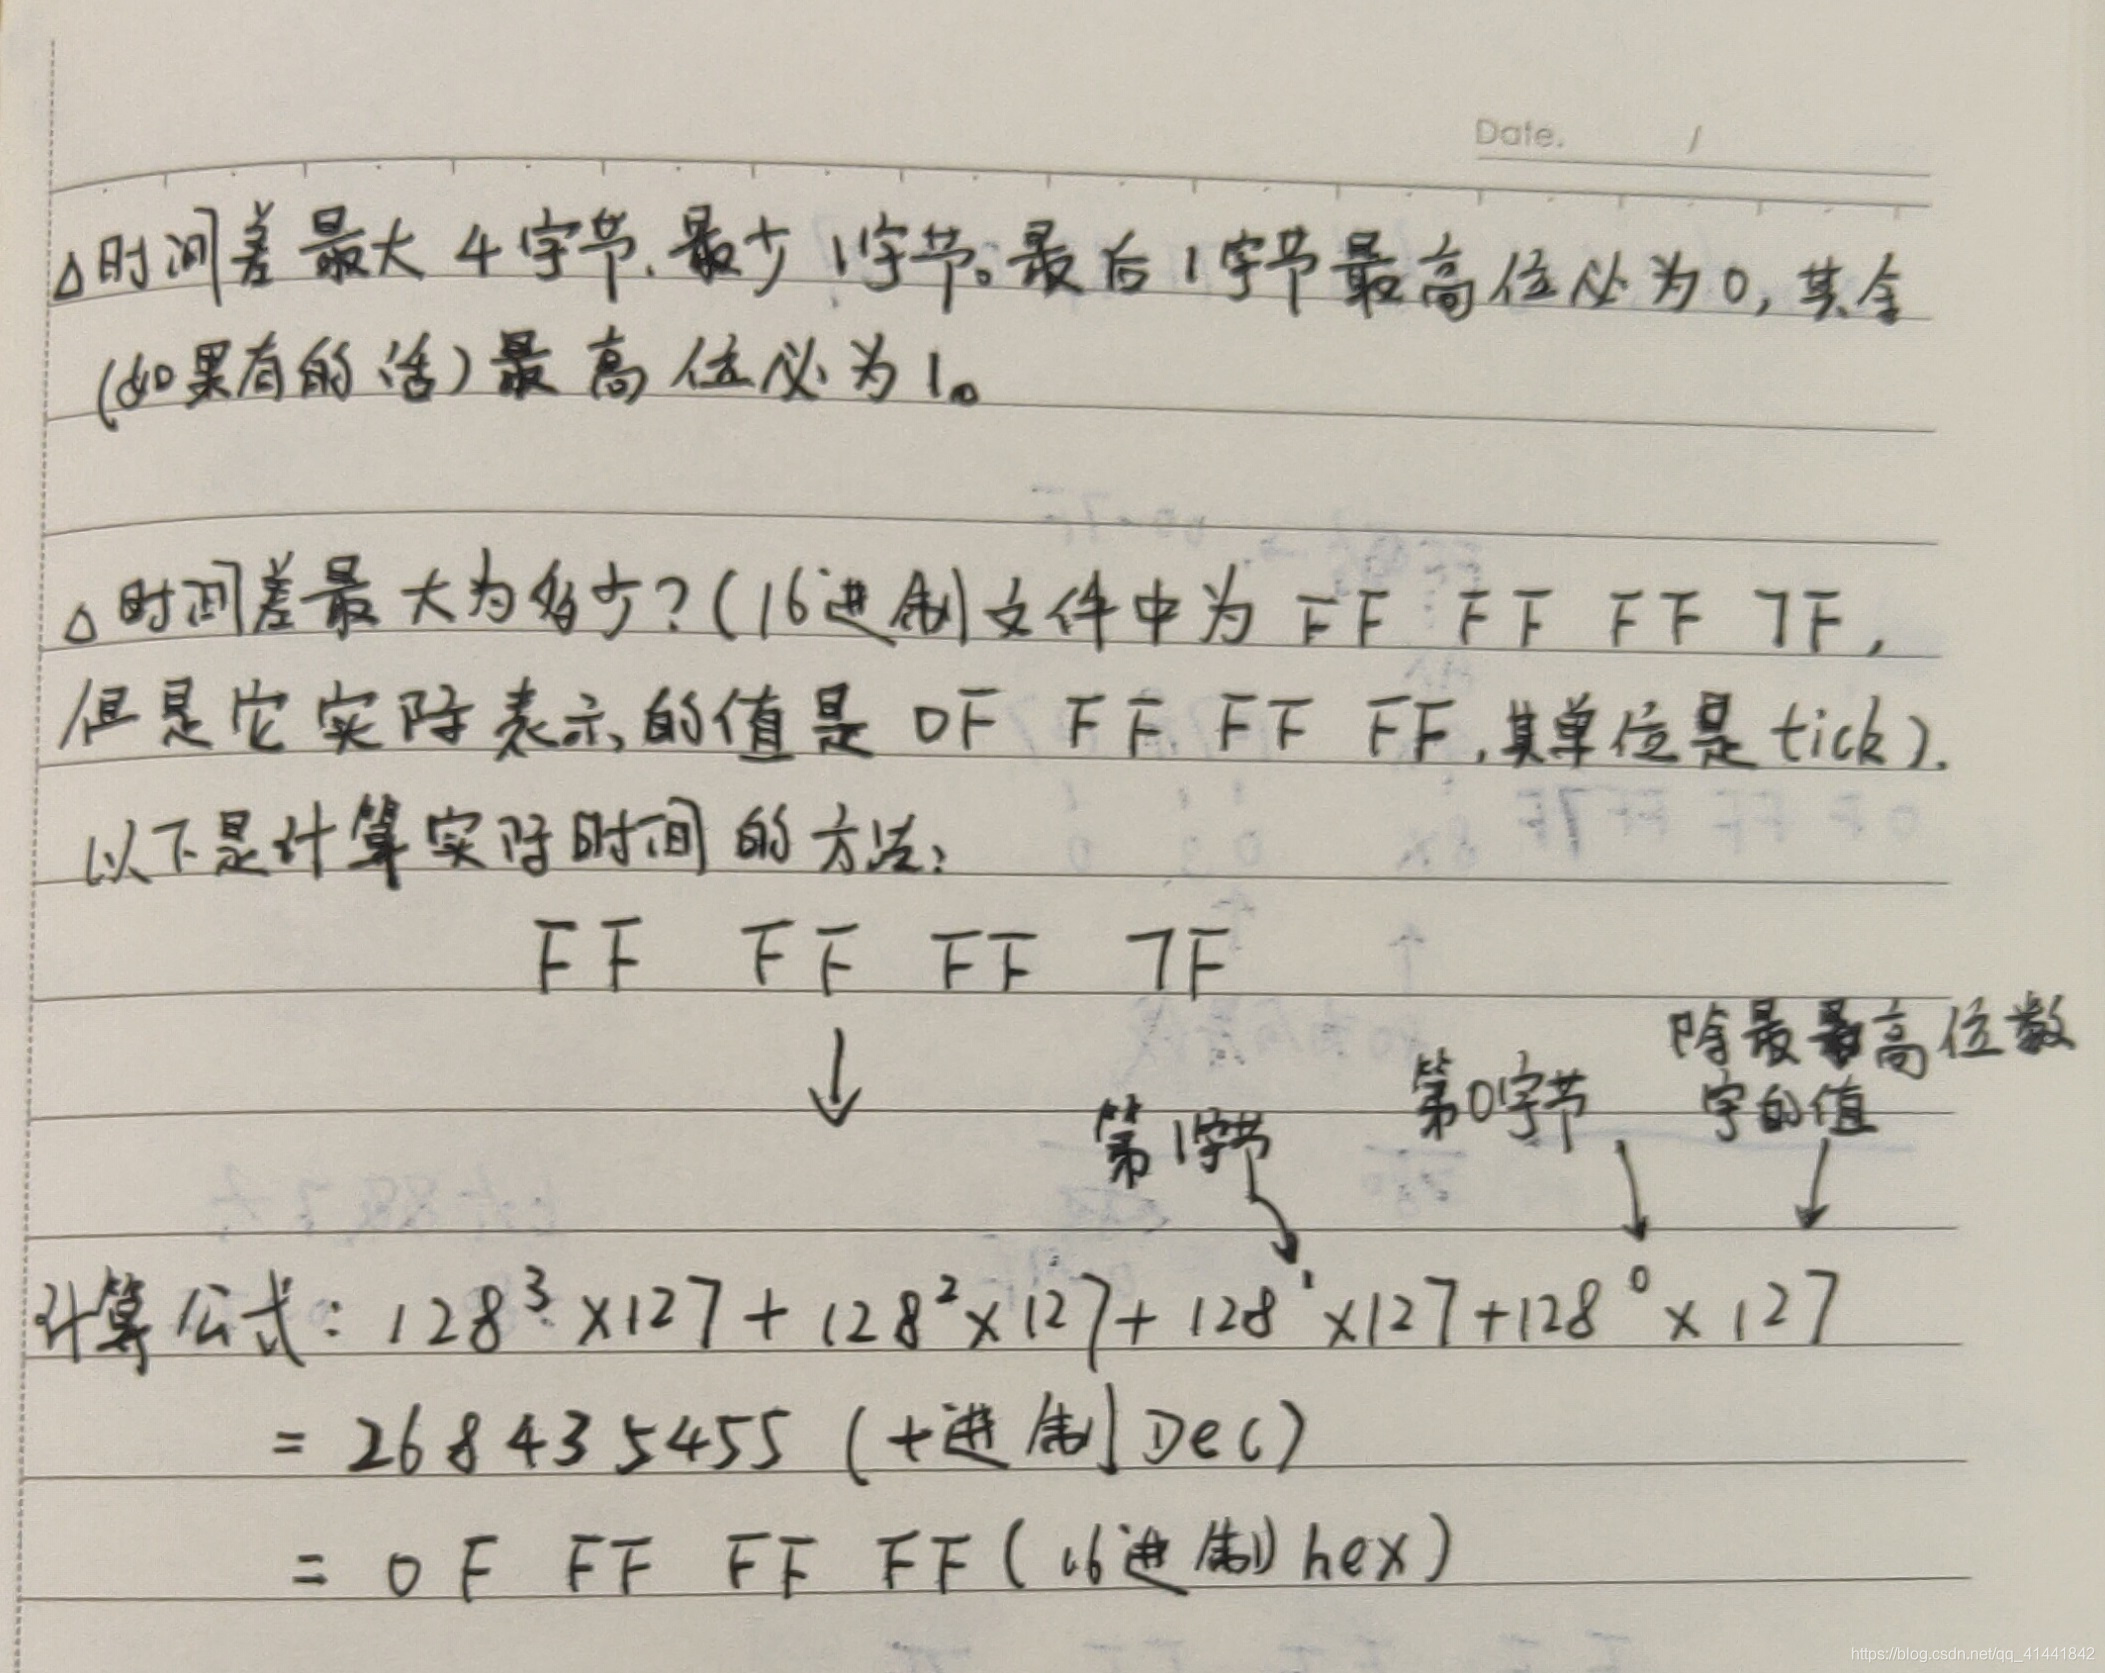 Date. /
△时间差最大4字节.最少1字节。最后1字节最高位必为0,其余
(如果有的话)最高位必为1。
△时间差最大为多少?(16进制文件中为 FF FF FF 7F,
但是它实际表示的值是 0F FF FF FF,其单位是tick).
以下是计算实际时间的方法:
FF FF FF 7F
↓
第1字节 第0字节 除最高位数
字的值
计算公式: 128³×127+128²×127+128¹×127+128⁰×127
= 268435455 (十进制Dec)
= 0F FF FF FF (16进制hex)
https://blog.csdn.net/qq_41441842